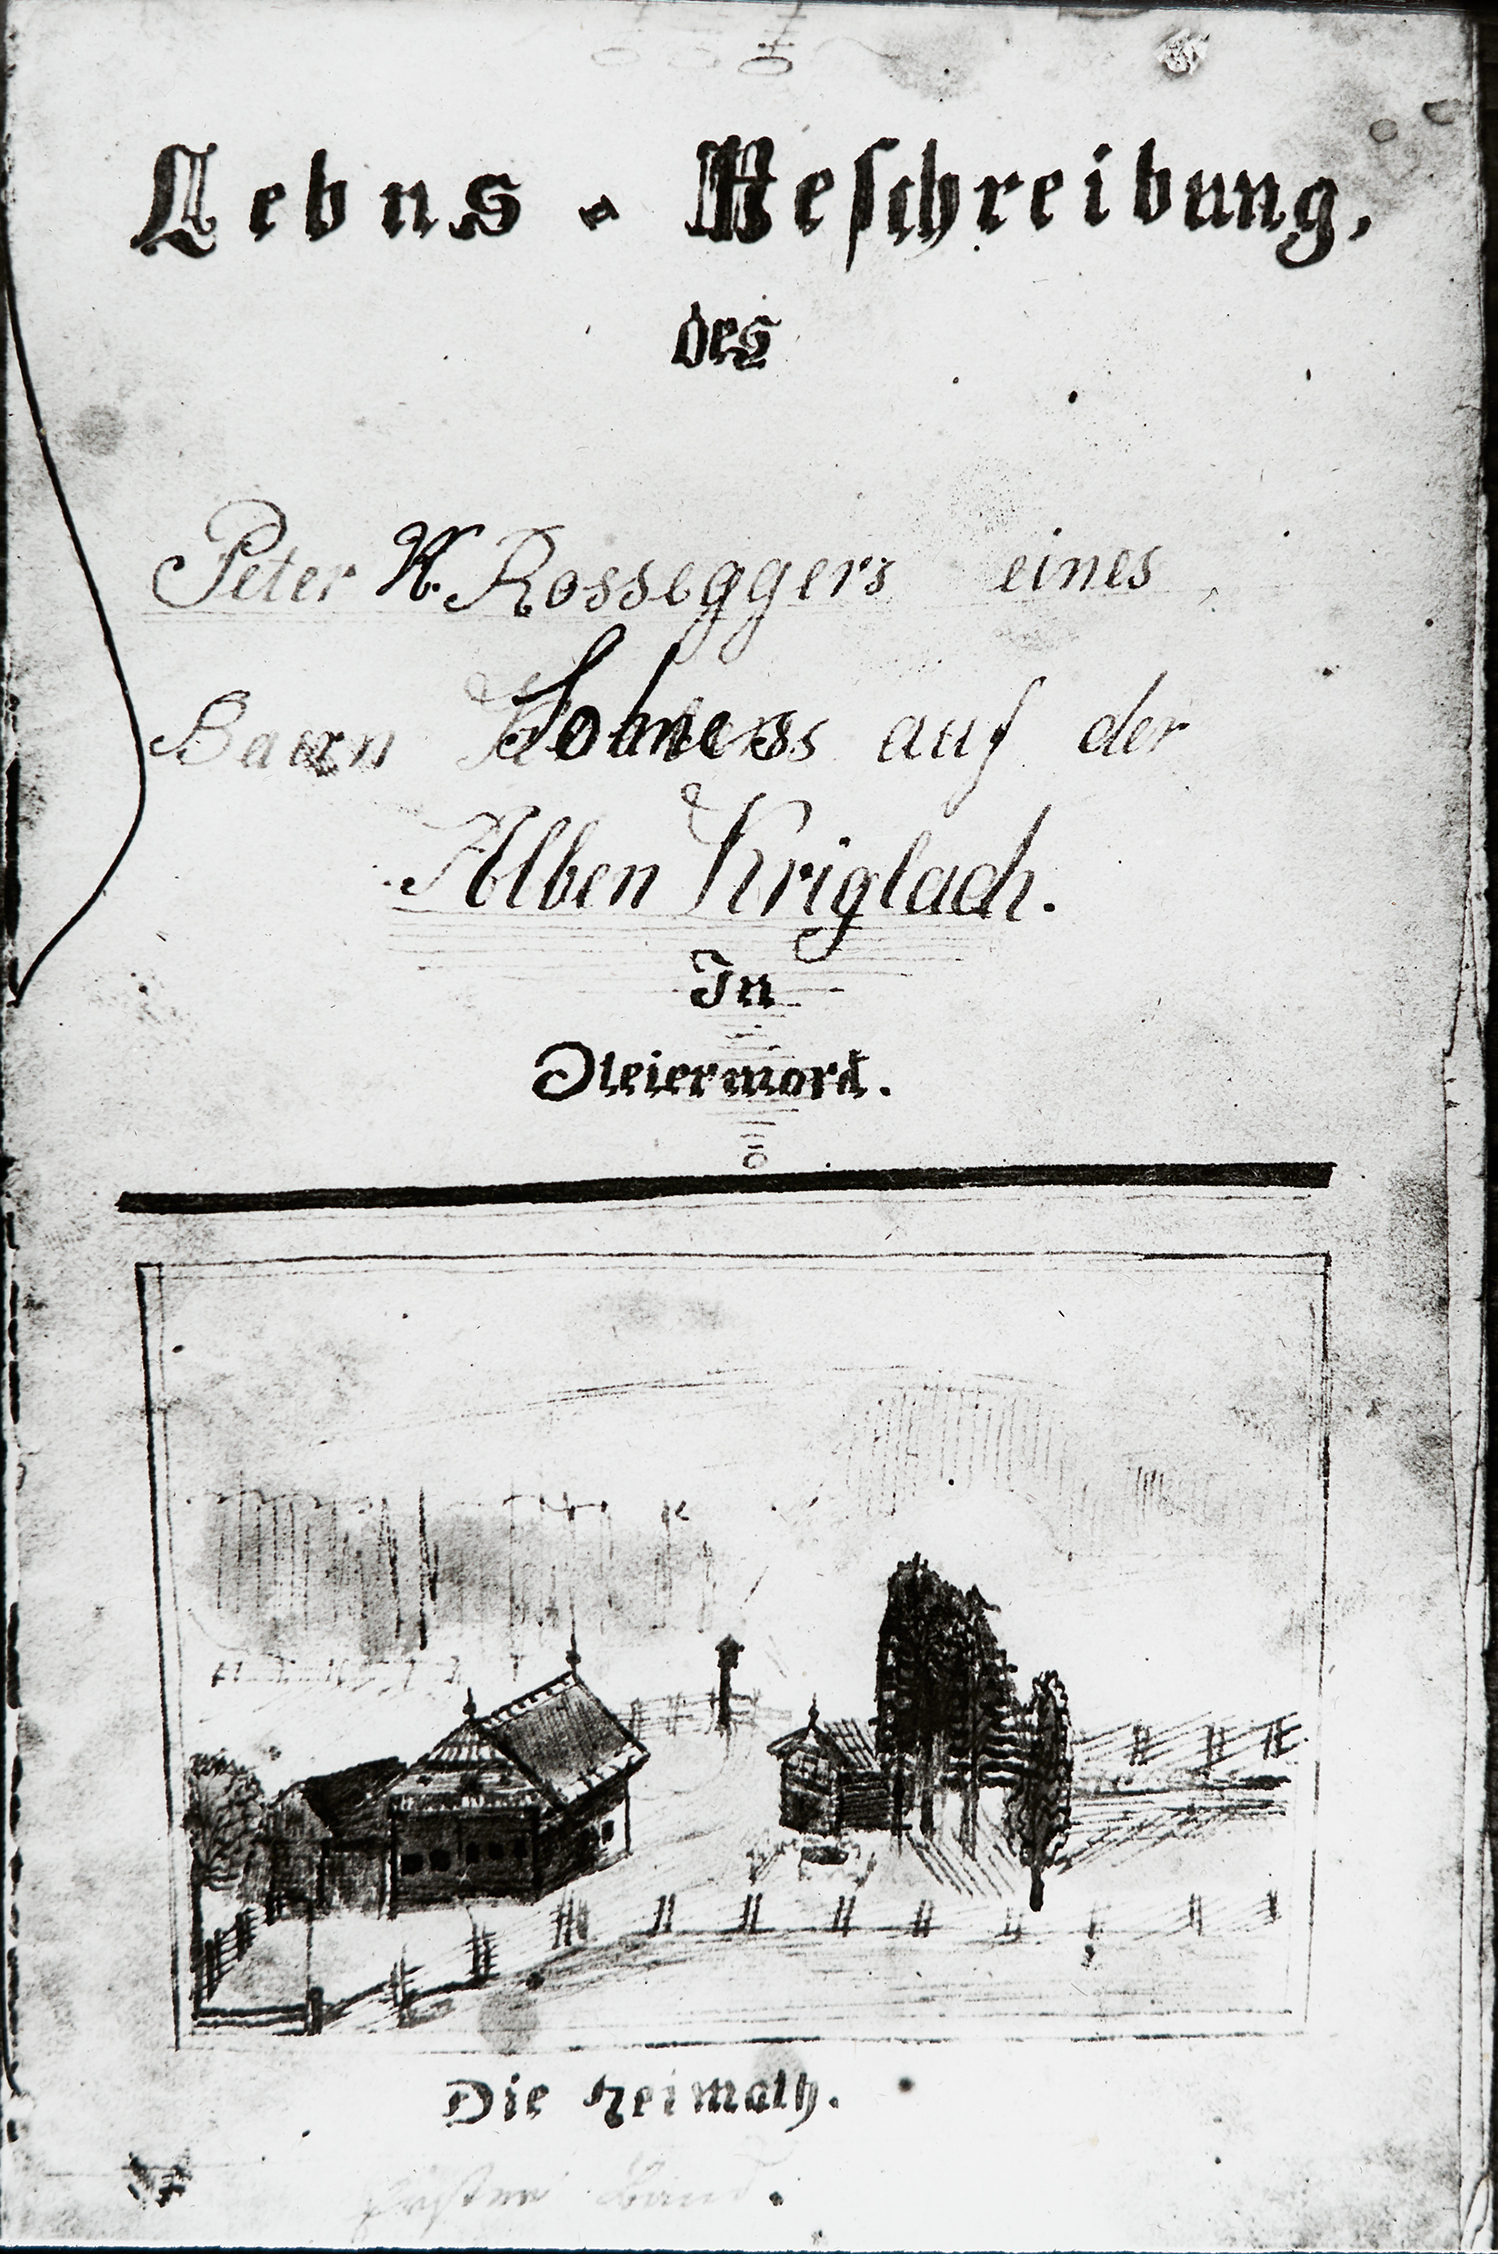 Lebns - Beschreibung,
des
Peter K. Rosseggers eines
Baurn Sohnes auf der
Alben Kriglach.
In
Steiermark.
Die Heimath.